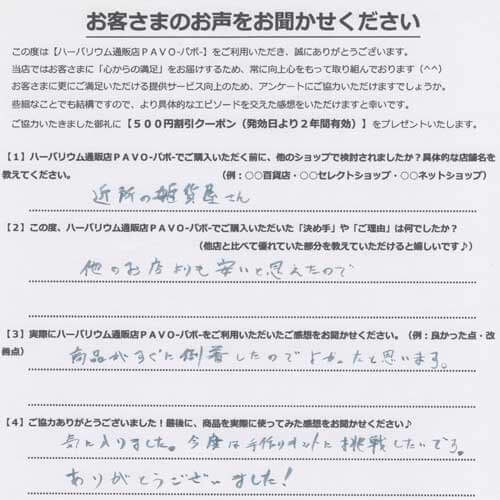 お客さまのお声をお聞かせください
この度は【ハーバリウム通販店ＰＡＶＯ-パボ-】をご利用いただき、誠にありがとうございます。
当店ではお客さまに「心からの満足」をお届けするため、常に向上心をもって取り組んでおります（^^）
お客さまに更にご満足いただける提供サービス向上のため、アンケートにご協力いただけますでしょうか。
些細なことでも結構ですので、より具体的なエピソードを交えた感想をいただけますと幸いです。
ご協力いただきました御礼に【５００円割引クーポン（発効日より２年間有効）】をプレゼントいたします。
【１】ハーバリウム通販店ＰＡＶＯ-パボ-でご購入いただく前に、他のショップで検討されましたか？具体的な店舗名を
教えてください。（例：○○百貨店・○○セレクトショップ・○○ネットショップ）
近所の雑貨屋さん
【２】この度、ハーバリウム通販店ＰＡＶＯ-パボ-でご購入いただいた「決め手」や「ご理由」は何でしたか？
（他店と比べて優れていた部分を教えていただけると嬉しいです♪）
他のお店よりも安いと思えたので
【３】実際にハーバリウム通販店ＰＡＶＯ-パボ-をご利用いただいたご感想をお聞かせください。（例：良かった点・改
善点）
商品がすぐに到着したのでよかったと思います。
【４】ご協力ありがとうございました！最後に、商品を実際に使ってみた感想をお聞かせください♪
気に入りました。今度は手作りキットに挑戦したいです。
ありがとうございました！